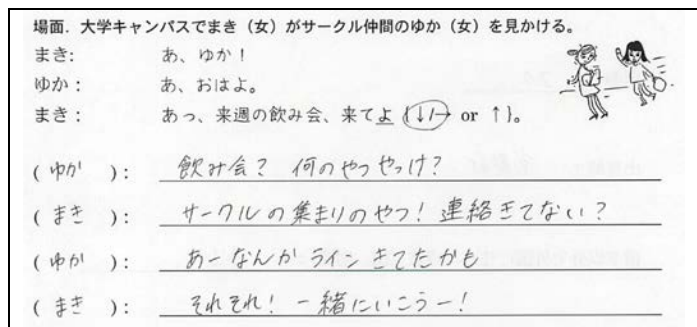 場面．大学キャンパスでまき（女）がサークル仲間のゆか（女）を見かける。
まき： あ、ゆか！
ゆか： あ、おはよ。
まき： あっ、来週の飲み会、来てよ {↓/→ or ↑}。
( ゆか )： 飲み会？ 何のやつやっけ？
( まき )： サークルの集まりのやつ！ 連絡きてない？
( ゆか )： あーなんか ライン きてたかも
( まき )： それそれ！ 一緒にいこうー！